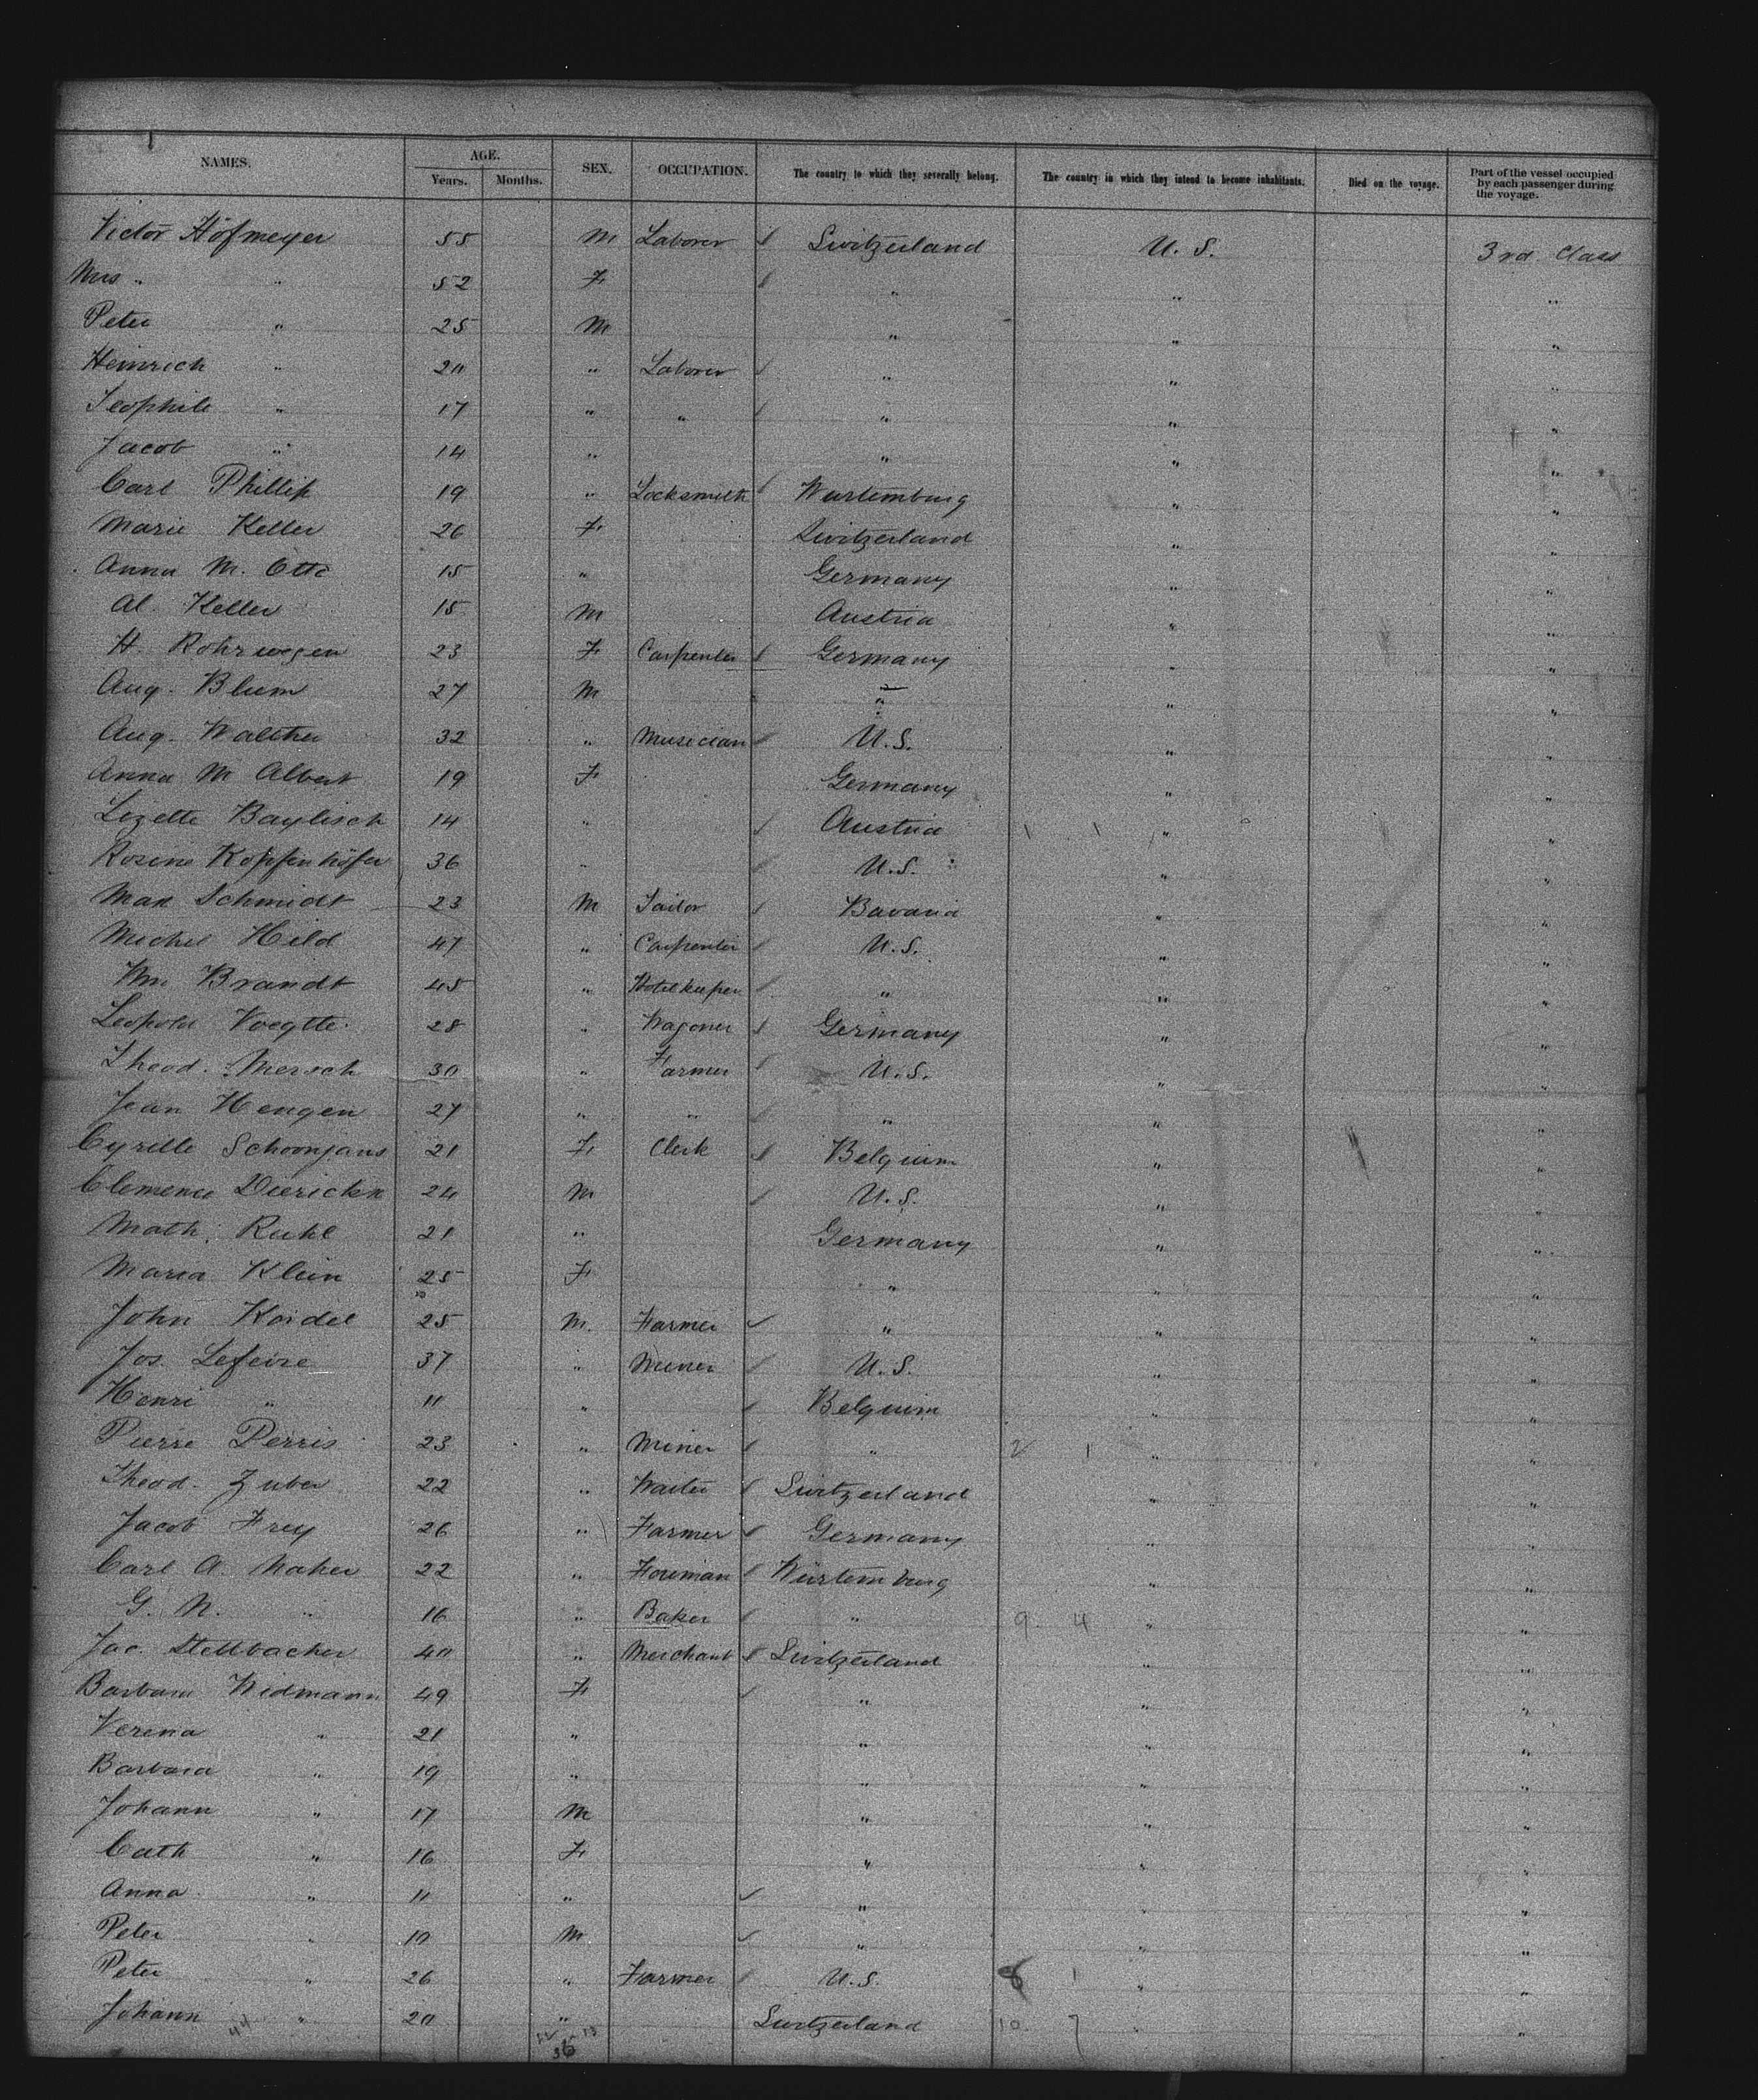 NAMES. AGE. SEX. OCCUPATION. The country to which they severally belong. The country in which they intend to become inhabitants. Died on the voyage. Part of the vessel occupied by each passenger during the voyage.
Years. Months.
Victor Hofmeyer 55 M Laborer Switzerland U. S. 3rd Class
Mrs " " 52 F " " "
Peter " 25 M " " "
Heinrich " 20 " Laborer " " "
Teophile " 17 " " " " "
Jacob " 14 " " " "
Carl Phillip 19 " Locksmith Wurtemburg " "
Marie Keller 26 F Switzerland " "
Anna M. Otte 15 " Germany " "
Al. Keller 15 M Austria " "
H. Rohrwegen 23 F Carpenter Germany " "
Aug. Blum 27 M " " "
Aug. Walther 32 " Musician U.S. " "
Anna M Albert 19 F Germany " "
Lizette Baylisch 14 " Austria 1 1 " "
Rosene Kopfenhöfer 36 " U.S. " "
Max Schmidt 23 M Tailor Bavaria " "
Michel Hild 47 " Carpenter U.S. " "
Wm Brandt 45 " Hotelkeeper " " "
Leopold Voegtte 28 " Wagoner Germany " "
Theod. Mersch 30 " Farmer U.S. " "
Jean Hengen 27 " " " " "
Cyrille Schoonjans 21 F Clerk Belguim " "
Clemence Dierickx 24 M U.S. " "
Math. Ruhl 21 " Germany " "
Maria Klein 25 F " " "
John Koidel 25 M. Farmer " " "
Jos. Lefeire 37 " Miner U.S. " "
Henri " 11 " Belguim " "
Pierre Perris 23 " Miner " 2 1 " "
Theod. Zuber 22 " Waiter Switzerland " "
Jacob Frey 26 " Farmer Germany " "
Carl A. Maher 22 " Foreman Würtemburg " "
G. N. " 16 " Baker " 9 4 " "
Jac. Stettbacher 40 " Merchant Switzerland " "
Barbara Widmann 49 F " " "
Verena " 21 " " " "
Barbara " 19 " " " "
Johann " 17 M " " "
Cath " 16 F " " "
Anna " 11 " " " "
Peter " 10 M " " "
Peter " 26 " Farmer U.S. 8 1 " "
Johann " 20 " Switzerland 10 7 " "
44 36